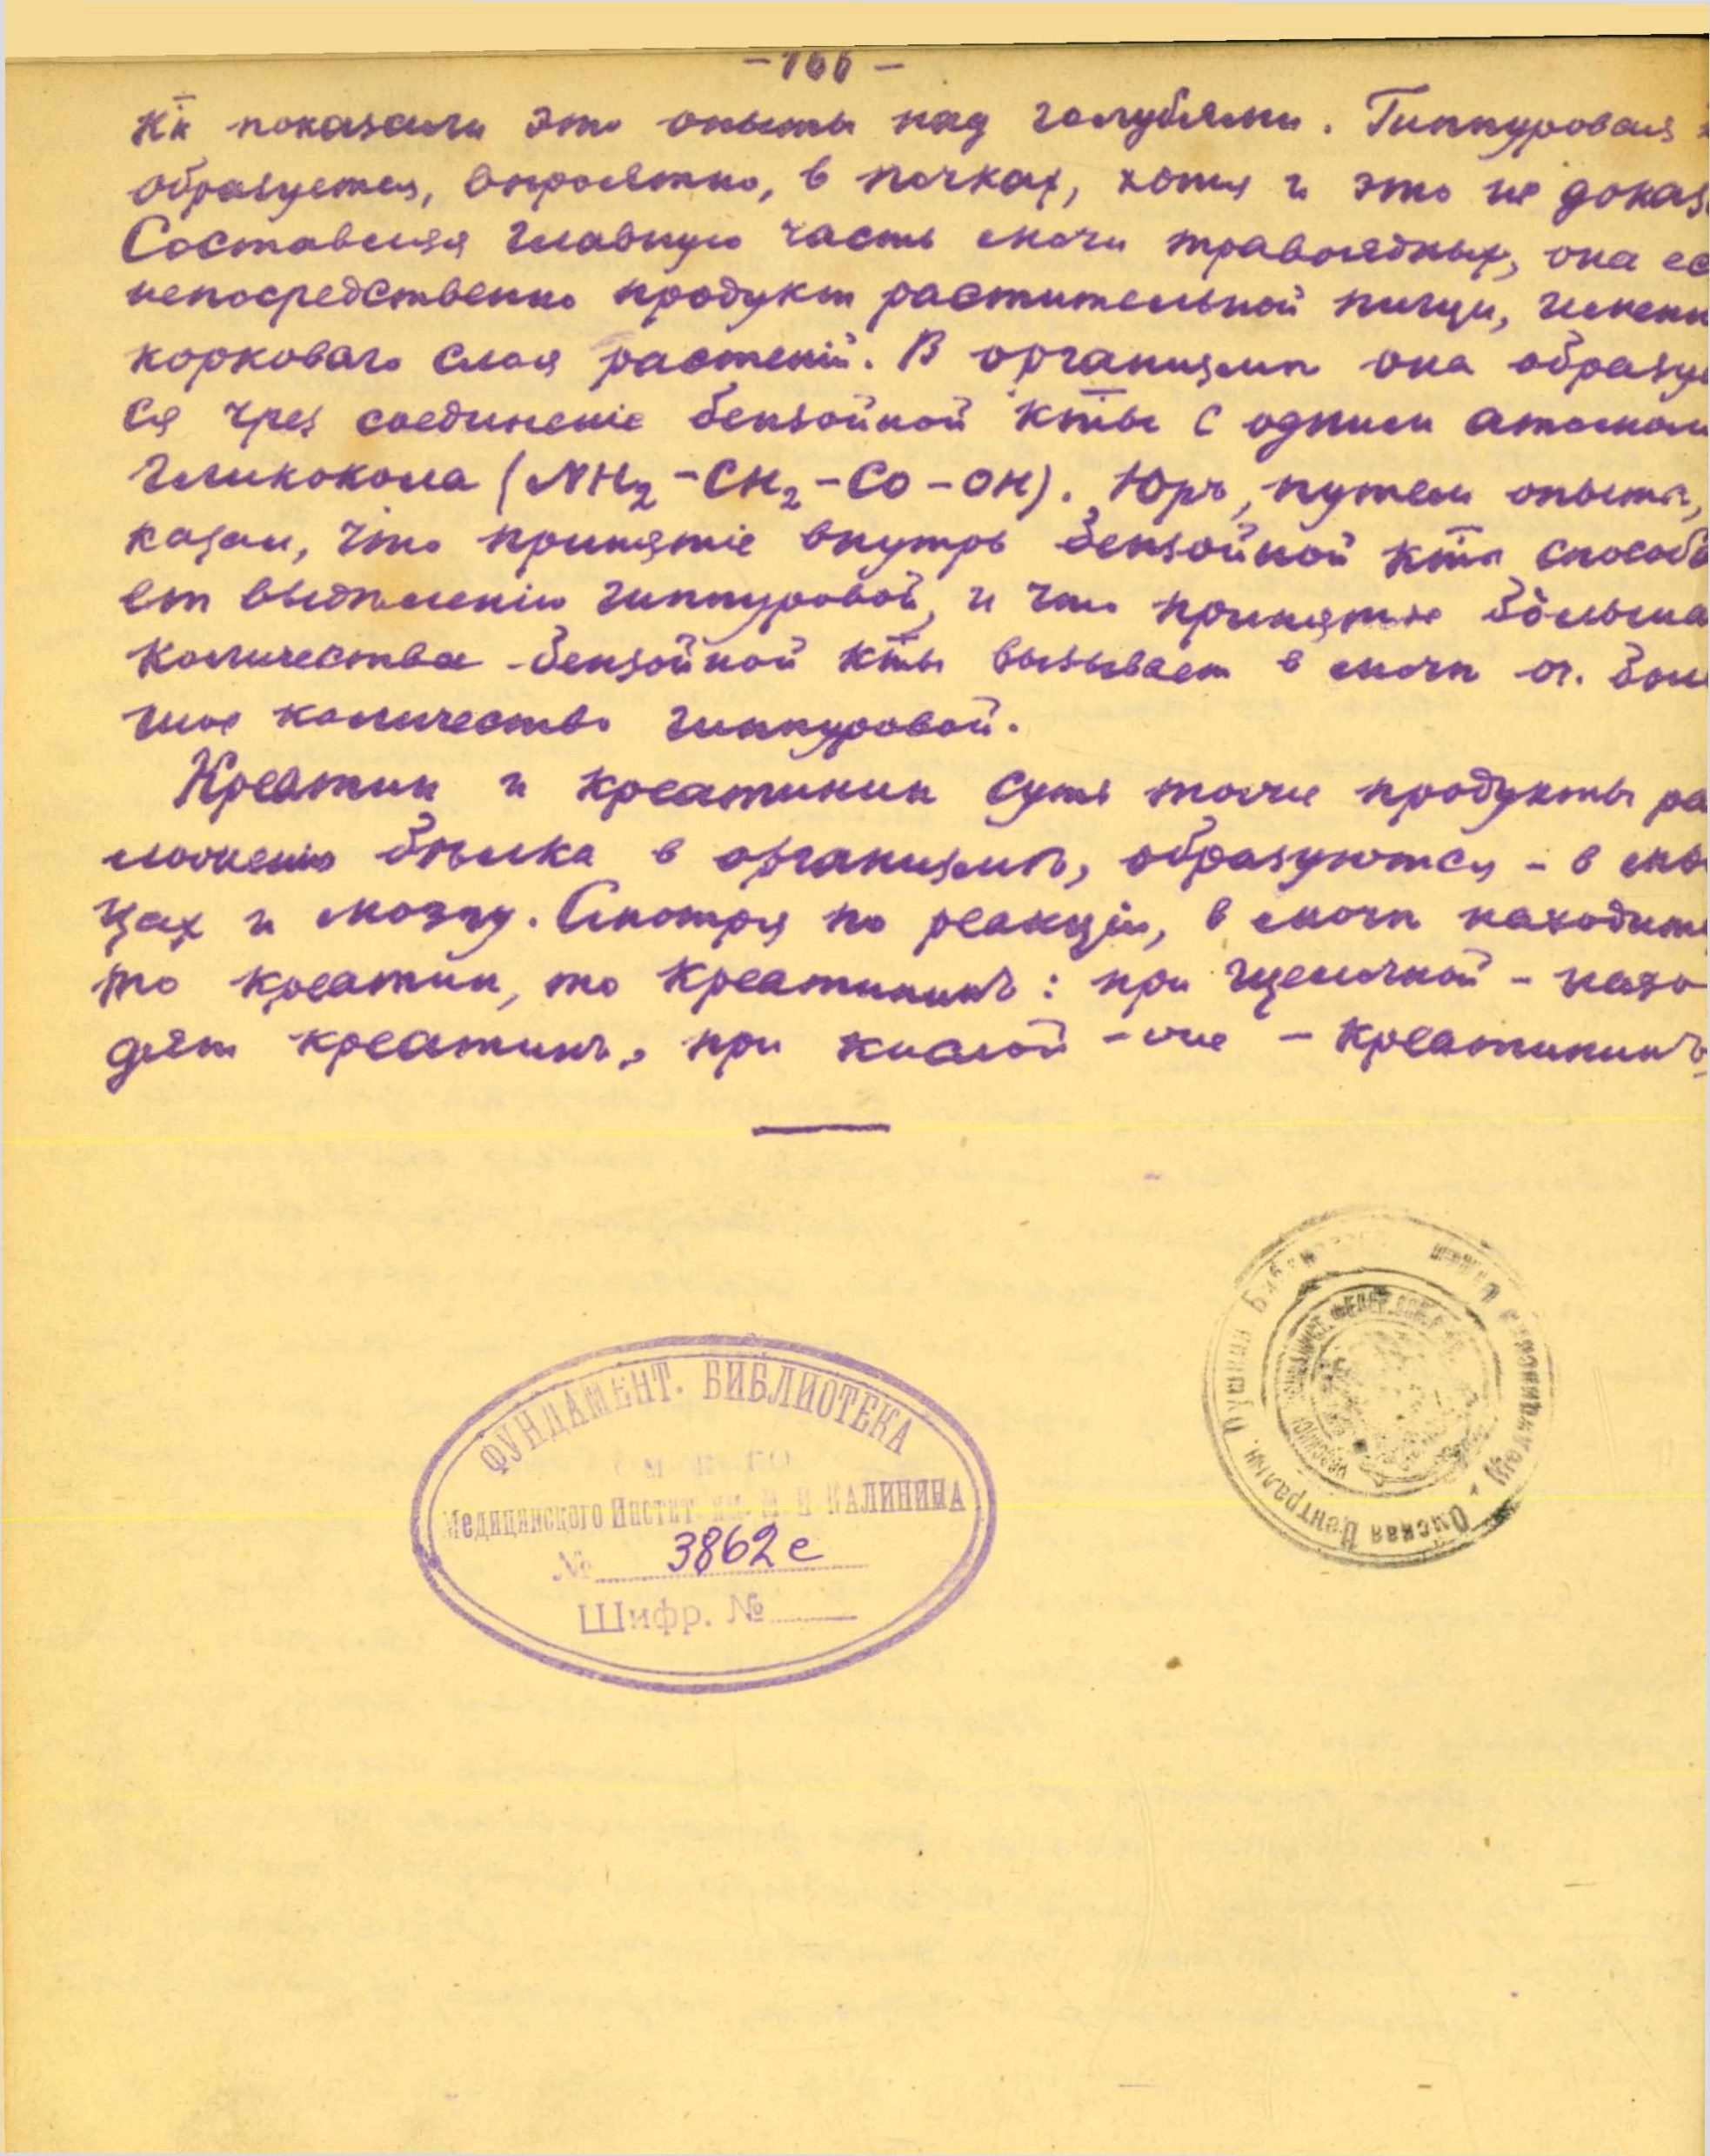 -166-
К̅к показали это опыты над голубями. Гиппуровая
образуется, вѣроятно, в почках, хотя и это не доказ
Составляя главную часть мочи травоядных, она ес
непосредственно продукт растительной пищи, именн
корковаго слоя растенiй. В организмѣ она образуе
ся чрез соединенiе бензойной к̅ты с одним атомом
гликокола (NH₂-CH₂-CO-OH). Юръ, путем опыта,
казал, что принятiе внутрь бензойной к̅ты способс
ет выдѣленiю гиппуровой, и что принятiе больша
количества бензойной к̅ты вызывает в мочѣ оч. бол
шое количество гиппуровой.
Креатин и креатинин суть тоже продукты ра
ложенiя бѣлка в организмѣ, образуются - в мы
цах и мозгу. Смотря по реакцiи, в мочѣ находит
то креатин, то креатининъ: при щелочной - нахо
дят креатинъ, при кислой -же - креатининъ,
ФУНДАМЕНТ. БИБЛИОТЕКА
Медицинского Инстит. им. М. И. КАЛИНИНА
№ 3862е
Шифр. №
Омская Центральн. Пушкин Библ